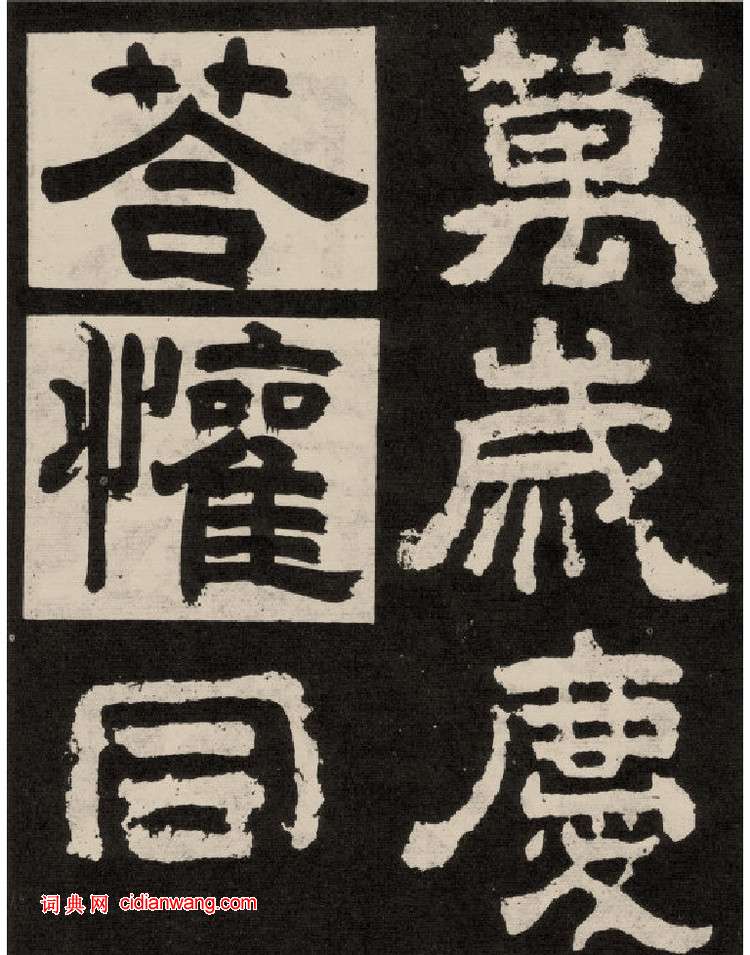 萬歲慶
荅懽同
词典网 cidianwang.com